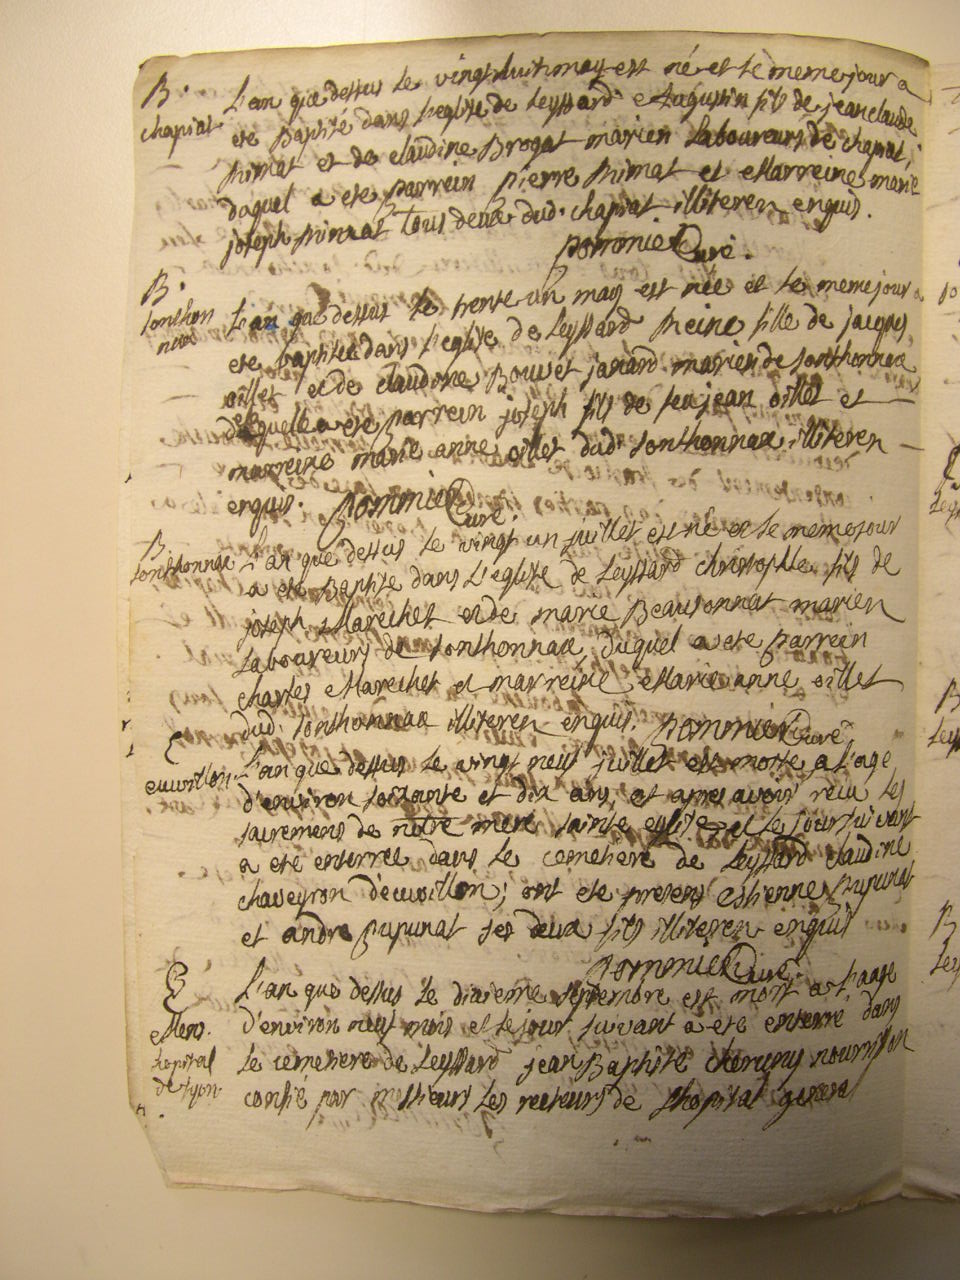 B.
chapiat
L'an que dessus le vingthuit may est né et le meme jour a
eté Baptisé dans l'eglise de Leyssard Augustin fils de jean claude
primat et de claudine Brogat marien Laboureurs de chapiat,
duquel a eté parrein pierre primat et Marreine marie
joseph primat tous deux dud. chapiat illiteren enquis.
pommier Curé.
B.
sonthon
nax
L'an que dessus le trente un may est née et le meme jour a
eté baptisée dans l'eglise de Leyssard fille de jacques
oillet et de claudine Bouvet janard marien de sonthonnax
de laquelle a eté parrein joseph fils de feu jean oillet et
marreine marie anne oillet dud. sonthonnax illiteren
enquis. pommier Curé.
B.
sonthonnax
L'an que dessus le vingt un juillet est né et le meme jour
a eté Baptisé dans L'eglise de Leyssard christophle fils de
joseph Marechet et de marie Beausonnat marien
Laboureurs de sonthonnax, duquel a eté parrein
charles Marechet et marreine Marie anne oillet
dud. sonthonnax illiteren enquis. pommier Curé
E
euvillon.
L'an que dessus Le vingt neuf juillet est morte a l'age
d'environ soixante et dix ans, et apres avoir recu les
sacremens de notre mere sainte eglise et le jour suivant
a eté enterrée dans le cemetiere de Leyssard claudine
chaveyron d'euvillon; ont eté presens Estienne pupunat
et andré pupunat ses deux fils illiteren enquis
pommier Curé.
E
hopital
de Lyon.
L'an que dessus le dixieme septembre est mort a l'aage
d'environ neuf mois et le jour suivant a eté enterré dans
le cemetiere de Leyssard jean Baptiste nourrisson
confié par messieurs les recteurs de l'hopital general